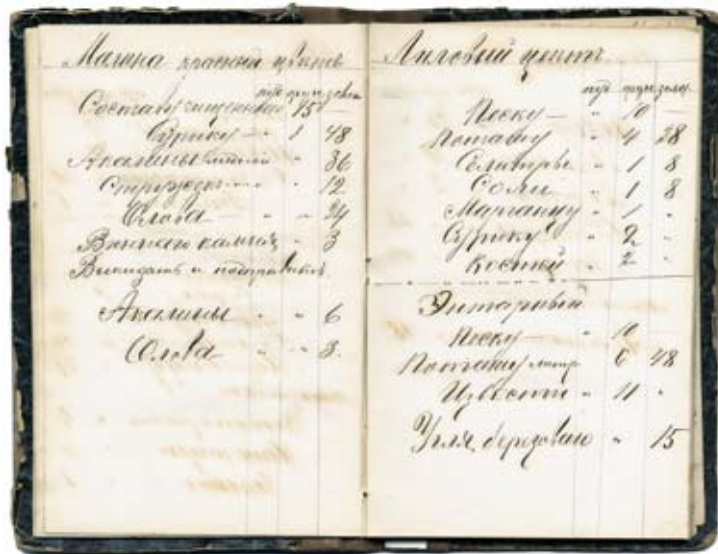 цветъ
пуд фунт золот
Составу чищенного 15 —
Сурику — " 1 48
Акалины " " 36
" " 12
Олова — " " 24
Виннаго камня " 3
Выкидать и
Акалины " " 6
Олова " " 3.
Лиловый цветъ
пуд фунт золот
Песку — " 10 —
Поташу " 4 28
Селитры " 1 8
Соли " 1 8
Марганцу " 1 "
Сурику " 2 "
Костей " 2 "
Янтарный
Песку — " 10 —
Поташу 6 48
Извести " 11 "
Угля березоваго " 15